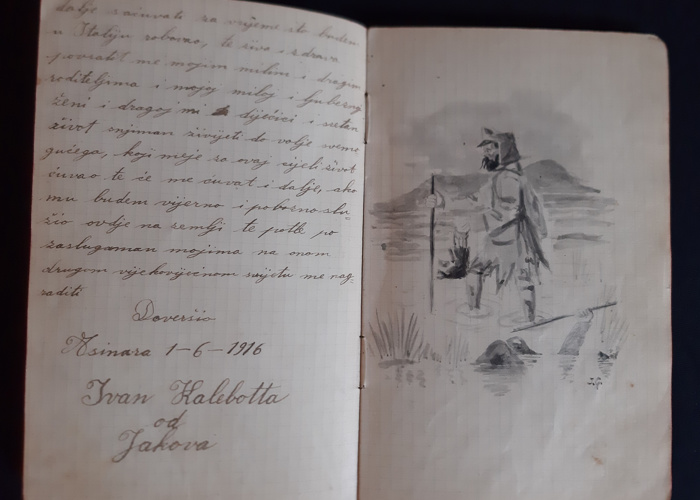 dalje sačuvati za vrijeme što budem
u Italiju robovao, te živo i zdravo
povratit me mojim milim i dragim
roditeljima i mojoj miloj i ljubeznoj
ženi i dragoj mi dječici i sretan
život snjiman živijeti do volje svemo
gućega, koji meje za ovaj cijeli život
čuvao te će me čuvat i dalje, ako
mu budem vijerno i pobožno slu-
žio ovdje na zemlji te potle po
zaslugaman mojima na onom
drugom vijekovječnom svijetu me nag-
raditi
Doveršio
Asinara 1-6-1916
Ivan Kalebotta
od
Jakova